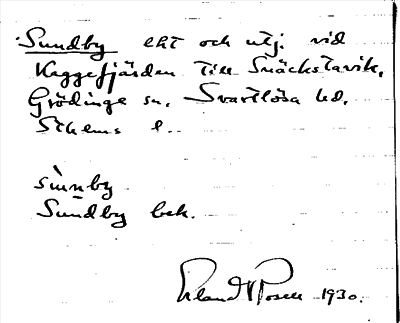 Sundby eht och utj. vid
Kaggefjärden till Snäckstavik,
Grödinge sn. Svartlösa hd.
Sthlms l.
sùnby
Sundby bek.
Erland Rosell 1930.